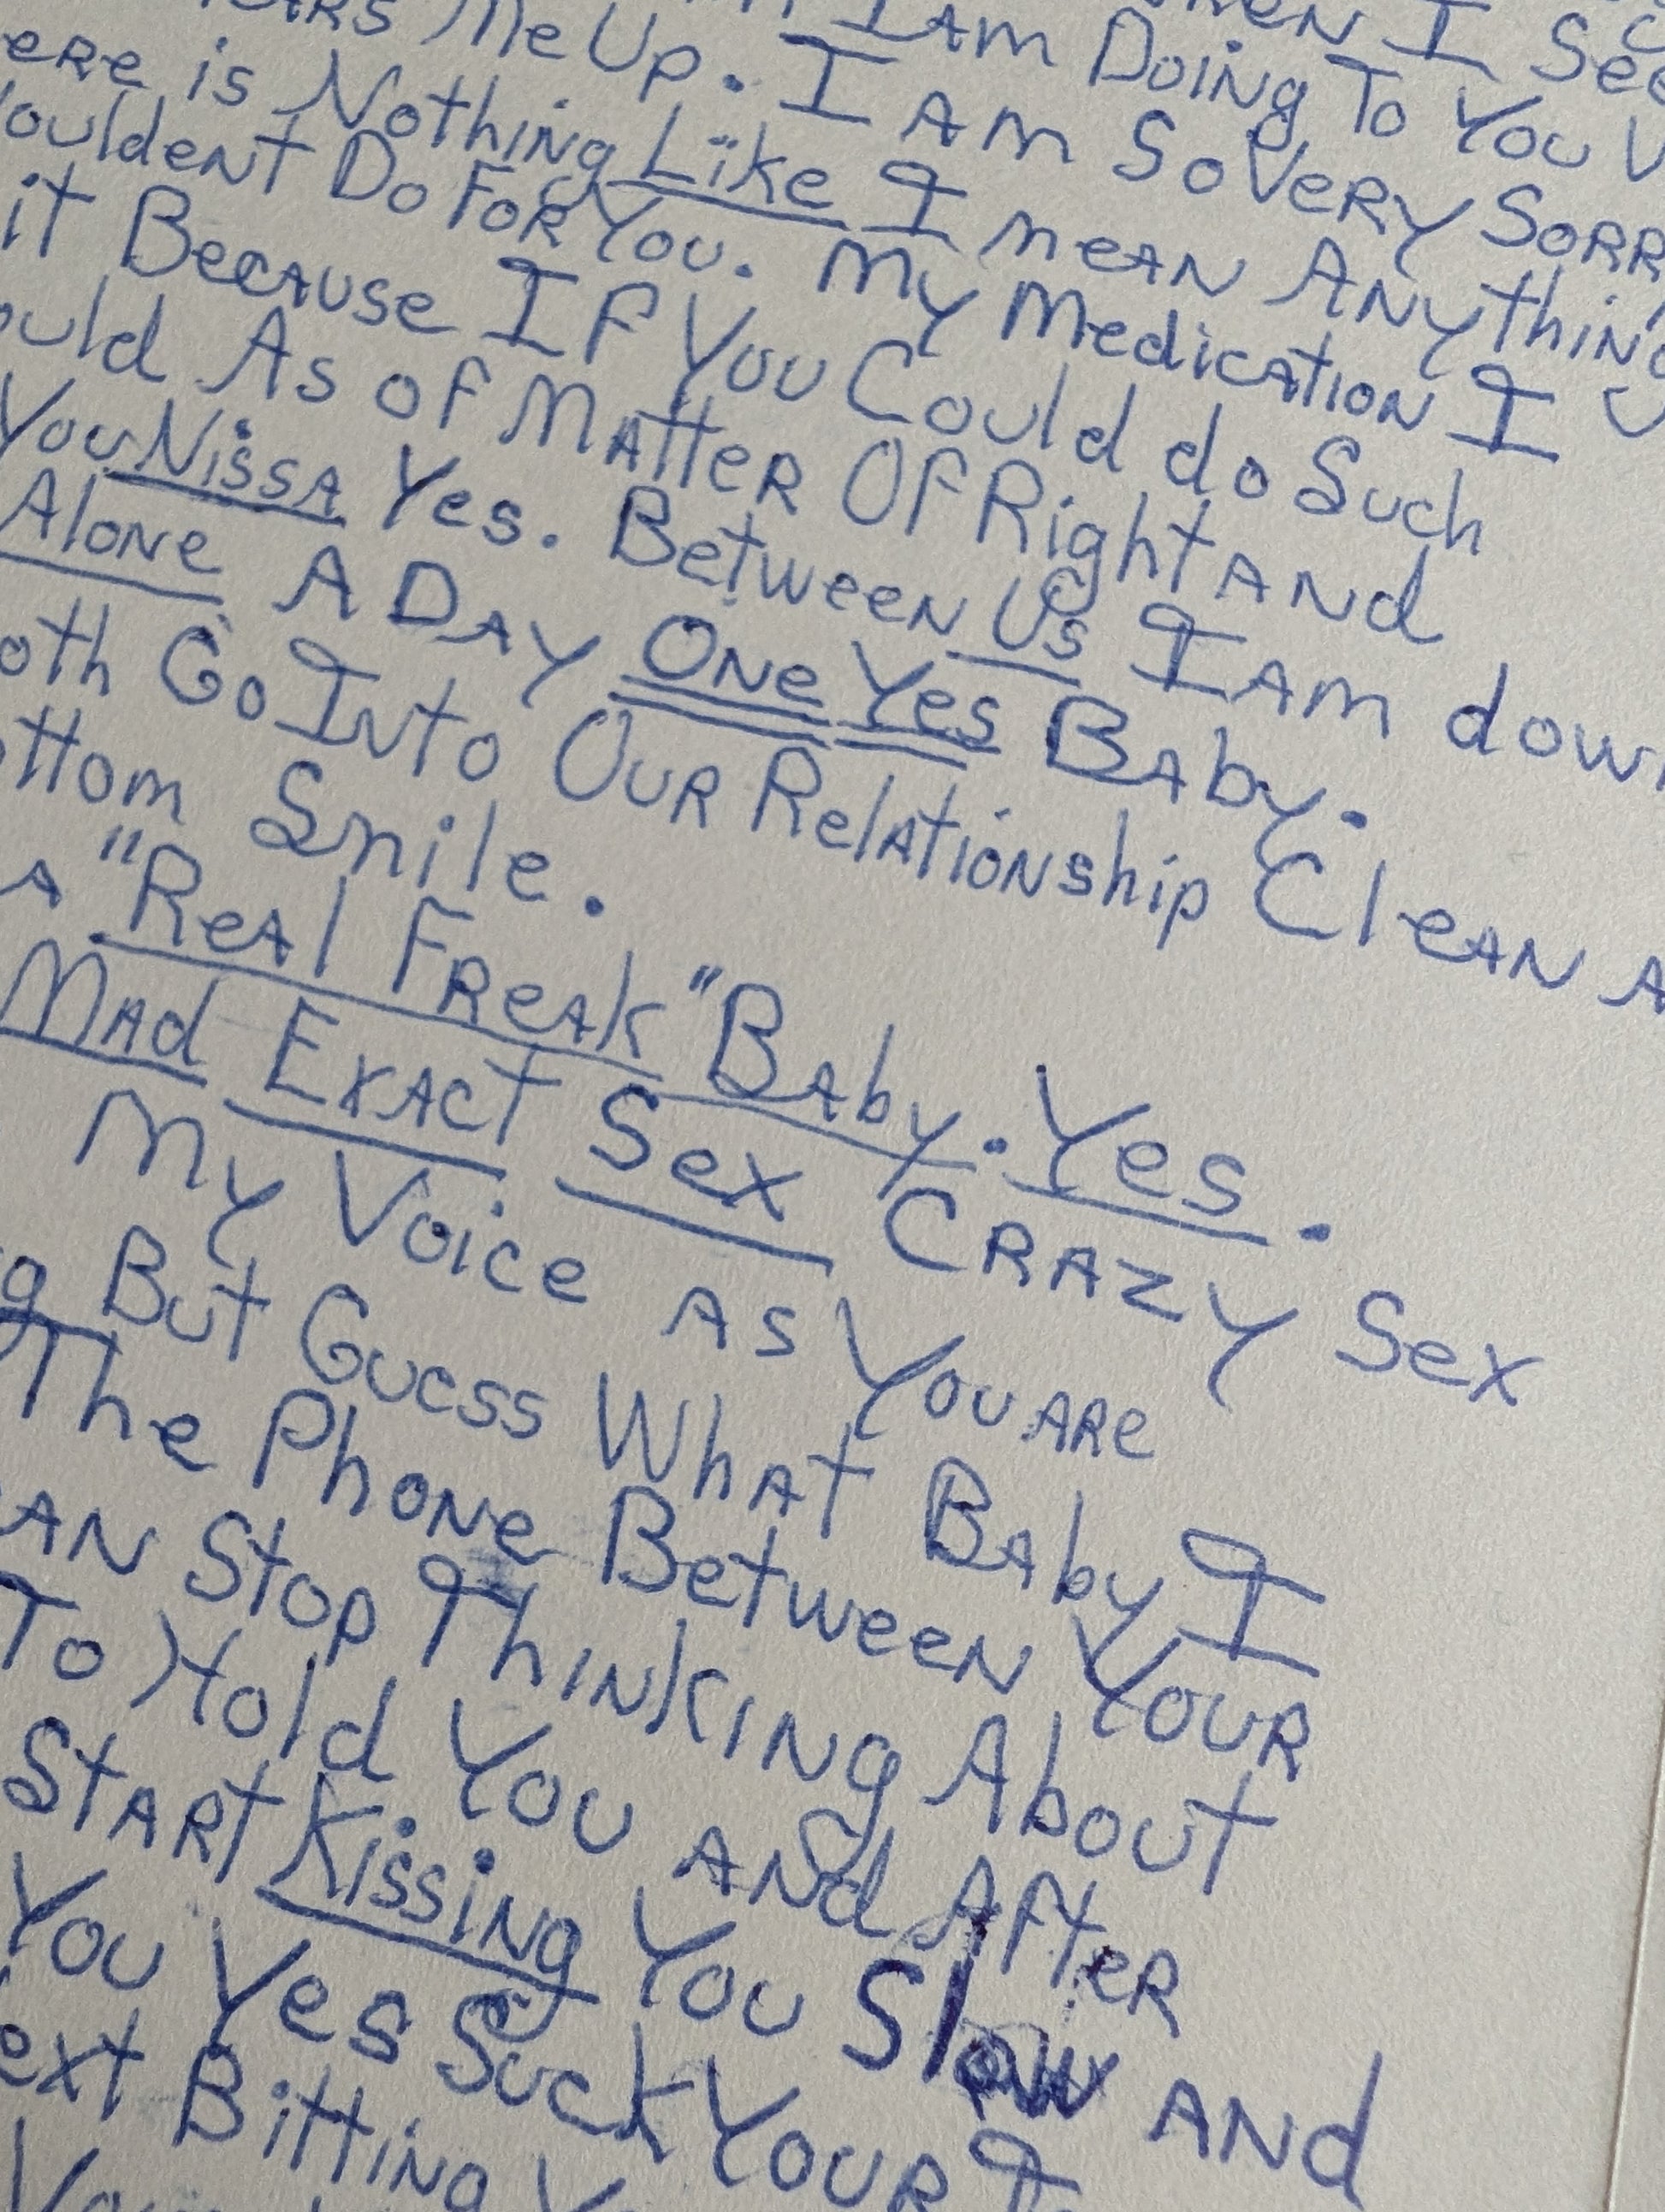 I See
I Am Doing To You
Me Up. I Am So Very Sorr
ere is Nothing Like I mean Anything
ouldent Do For You. My Medication I
it Because If You Could do Such
ould As of Matter Of Right And
You Nissa Yes. Between Us I Am down
Alone A Day One Yes Baby.
oth Go Into Our Relationship Clean A
ttom Smile.
A "Real Freak" Baby. Yes.
Mad Exact Sex Crazy Sex
My Voice As You Are
g But Guess What Baby I
The Phone Between Your
an Stop Thinking About
To Hold You And After
Start Kissing You Slow And
You Yes Suck Your
ext Bitting